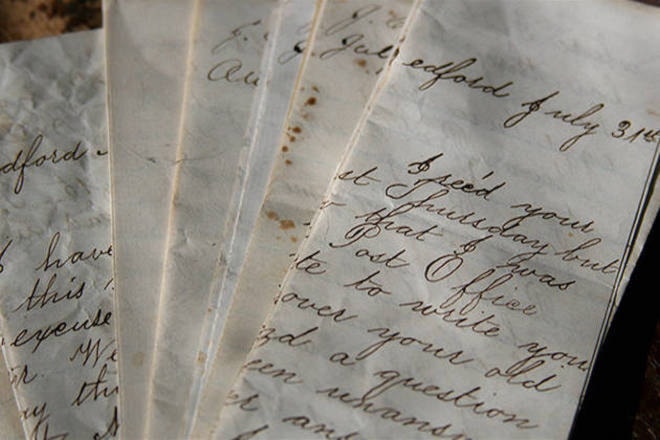 dford
have
this
excuse
r. We
ay thi
J.
Au
J. Jul
edford July 31st
I rec'd your
st Thursday but
that I was
Post Office
te to write you
over your old
nd a question
een unansw
er and